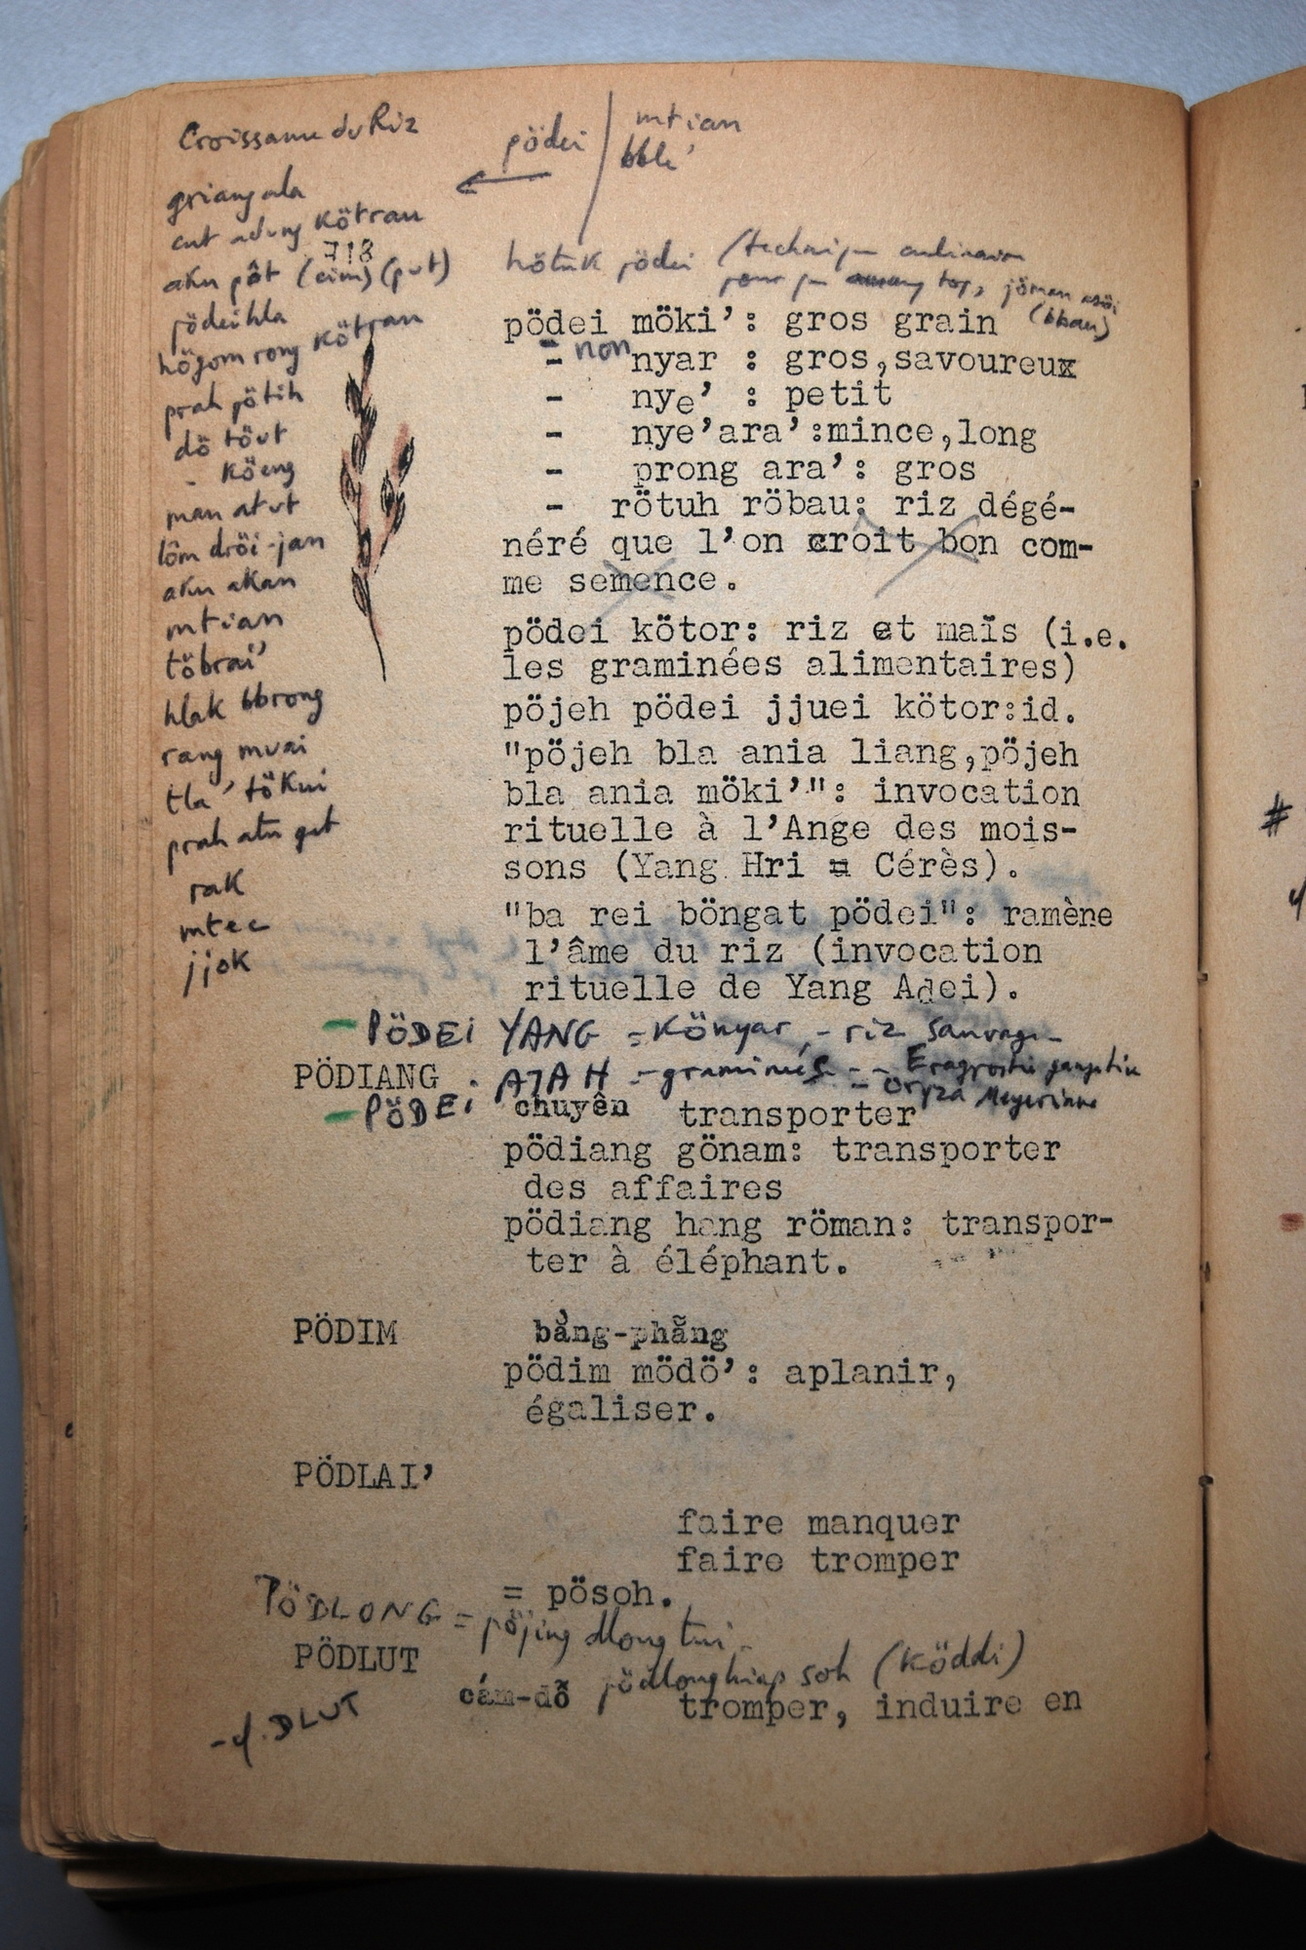 Croissance du Riz
griang ala
cut adung kötran
718
aku pôt (cim) (put)
pödei hla
högom rong kötran
prah pötih
dö töut
- köeng
man atut
lôm dröi-jan
aku akan
mtian
töbrai'
hlak bbrong
rang muai
tla' tökui
prah atu
rak
mtec
jjok
pödei / mtian
bblе'
hötuk pödei (technique culinaire
pour top, jöman
(bbau)
pödei möki’: gros grain
- non nyar : gros,savoureux
- nye’ : petit
- nye’ara’:mince,long
- prong ara’: gros
- rötuh röbau: riz dégé-
néré que l’on croit bon com-
me semence.
pödei kötor: riz et maïs (i.e.
les graminées alimentaires)
pöjeh pödei jjuei kötor:id.
"pöjeh bla ania liang,pöjeh
bla ania möki’": invocation
rituelle à l’Ange des mois-
sons (Yang Hri = Cérès).
"ba rei böngat pödei": ramène
l’âme du riz (invocation
rituelle de Yang Adei).
- PÖDEI YANG = Könyar - riz sauvage -
- PÖDEI AJAH - graminées - - Eragrostis
- Oryza Meyeriana
PÖDIANG .
chuyên transporter
pödiang gönam: transporter
des affaires
pödiang hang röman: transpor-
ter à éléphant.
PÖDIM bằng-phẳng
pödim mödö’: aplanir,
égaliser.
PÖDLAI’
faire manquer
faire tromper
= pösoh.
PÖDLONG = pöjing dlong tui -
pödlong hiap soh (köddi)
PÖDLUT
cám-dỗ tromper, induire en
- cf. DLUT
#